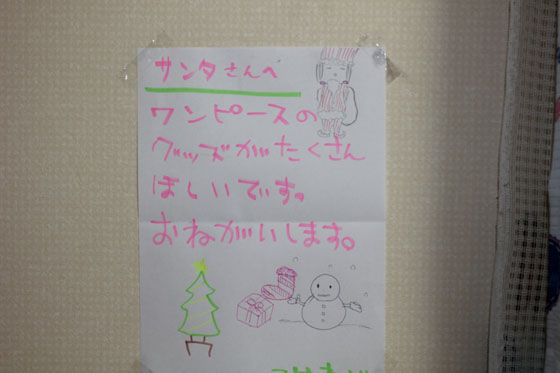 サンタさんへ
ワンピースの
グッズがたくさん
ほしいです。
おねがいします。